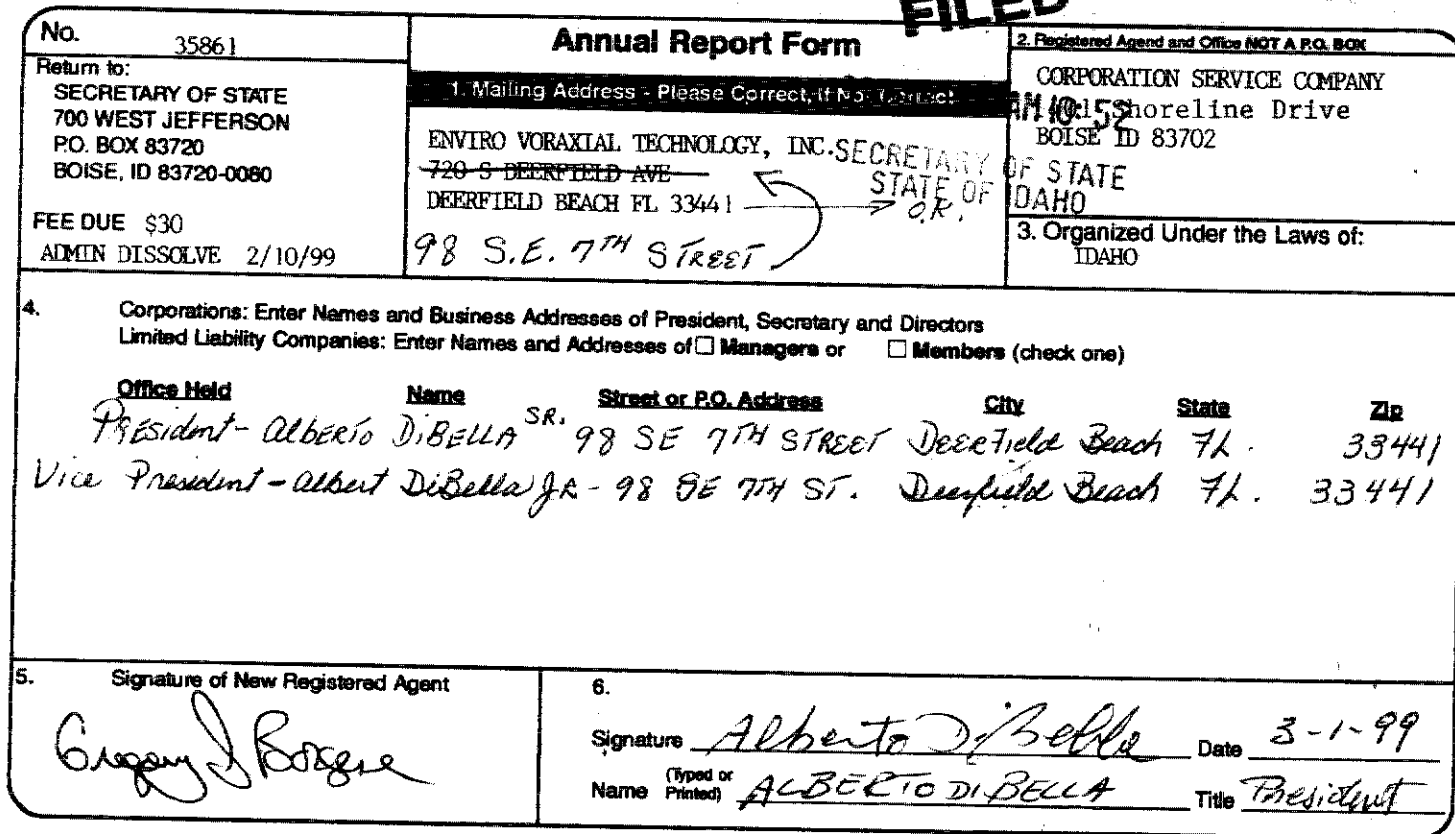 FILED
No. 35861
Return to:
SECRETARY OF STATE
700 WEST JEFFERSON
P.O. BOX 83720
BOISE, ID 83720-0080
FEE DUE $30
ADMIN DISSOLVE 2/10/99
Annual Report Form
1. Mailing Address - Please Correct, If Not Correct
ENVIRO VORAXIAL TECHNOLOGY, INC.
720 S DEERFIELD AVE
DEERFIELD BEACH FL 33441
O.K.
98 S.E. 7TH STREET
2. Registered Agend and Office NOT A P.O. BOX
CORPORATION SERVICE COMPANY
Shoreline Drive
BOISE ID 83702
AM 10:52
SECRETARY OF STATE
STATE OF IDAHO
3. Organized Under the Laws of:
IDAHO
4. Corporations: Enter Names and Business Addresses of President, Secretary and Directors
Limited Liability Companies: Enter Names and Addresses of ☐ Managers or ☐ Members (check one)
Office Held Name Street or P.O. Address City State Zip
President - Alberto DiBella SR. 98 SE 7TH STREET Deerfield Beach FL. 33441
Vice President - Albert DiBella JR - 98 SE 7TH ST. Deerfield Beach FL. 33441
5. Signature of New Registered Agent
6.
Signature Alberto DiBella Date 3-1-99
Name (Typed or Printed) ALBERTO DIBELLA Title President